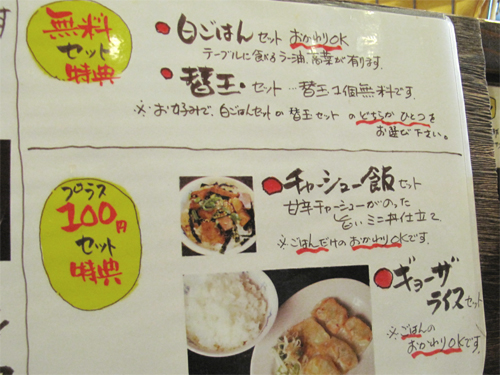 無料
セット
特典
白ごはん セット おかわりOK
テーブルに食べるラー油、高菜が有ります。
替玉・セット …替玉1個無料です。
※お好みで、白ごはんセットか替玉セットのどちらかひとつを
お選び下さい。
プラス
100円
セット
特典
チャーシュー飯 セット
甘辛チャーシューがのった
旨いミニ丼仕立て
※ごはんだけのおかわりOKです。
ギョーザ
ライス セット
※ごはんの
おかわりOKです。